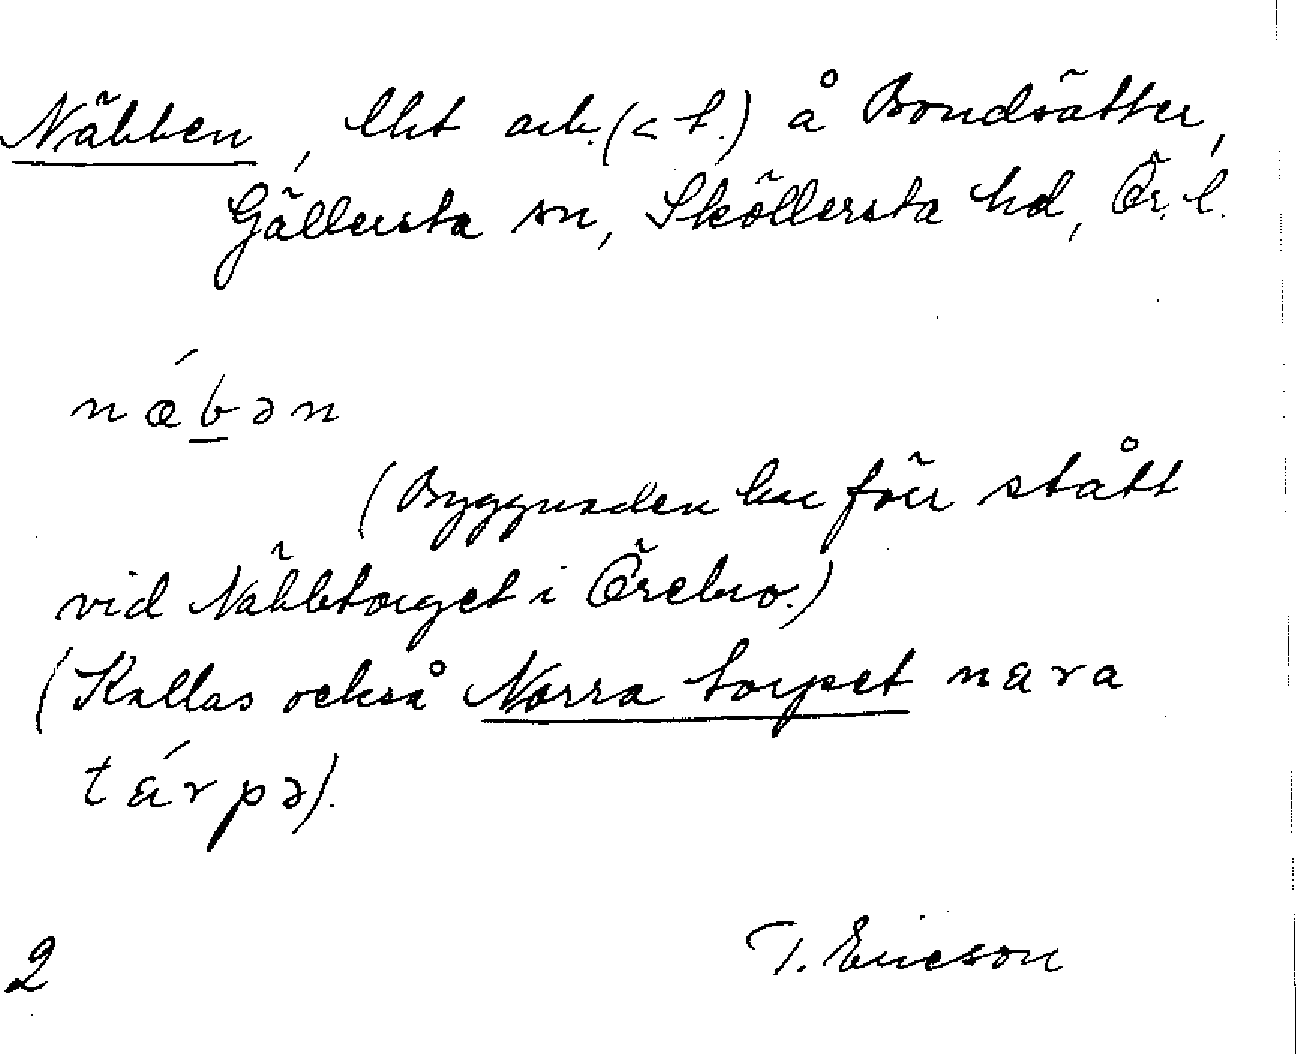 Näbben, lht arb. (< t.) å Bondsätter,
Gällersta sn, Sköllersta hd, Ör. l.
næ´bən
(Byggnaden har förr stått
vid Näbbtorget i Örebro.)
(Kallas också Norra torpet nara
tárpə).
2 T. Ericson